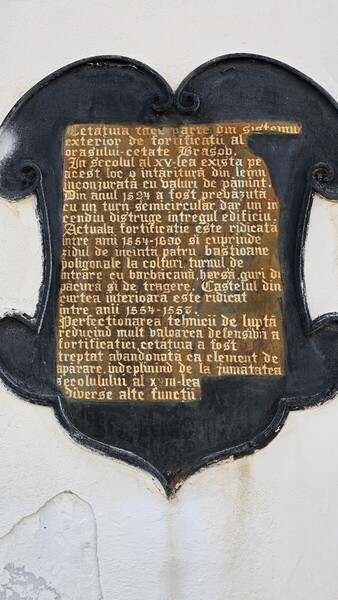 Cetățuia face parte din sistemul
exterior de fortificații al
orașului-cetate Brașov.
In secolul al XV-lea exista pe
acest loc o întăritură din lemn
înconjurată cu valuri de pămînt.
Din anul 1524 a fost prevăzută
cu un turn semicircular dar un in
cendiu distruge întregul edificiu.
Actuala fortificație este ridicată
între anii 1554-1630 și cuprinde
zidul de incintă patru bastioane
poligonale la colțuri turnul de
intrare cu barbacană, hersă, guri de
păcură și de tragere. Castelul din
curtea interioară este ridicat
între anii 1554-1557.
Perfecționarea tehnicii de luptă
reducînd mult valoarea defensivă a
fortificației, cetățuia a fost
treptat abandonată ca element de
apărare, îndeplinind de la jumătatea
secolulului al XVIII-lea
diverse alte funcții